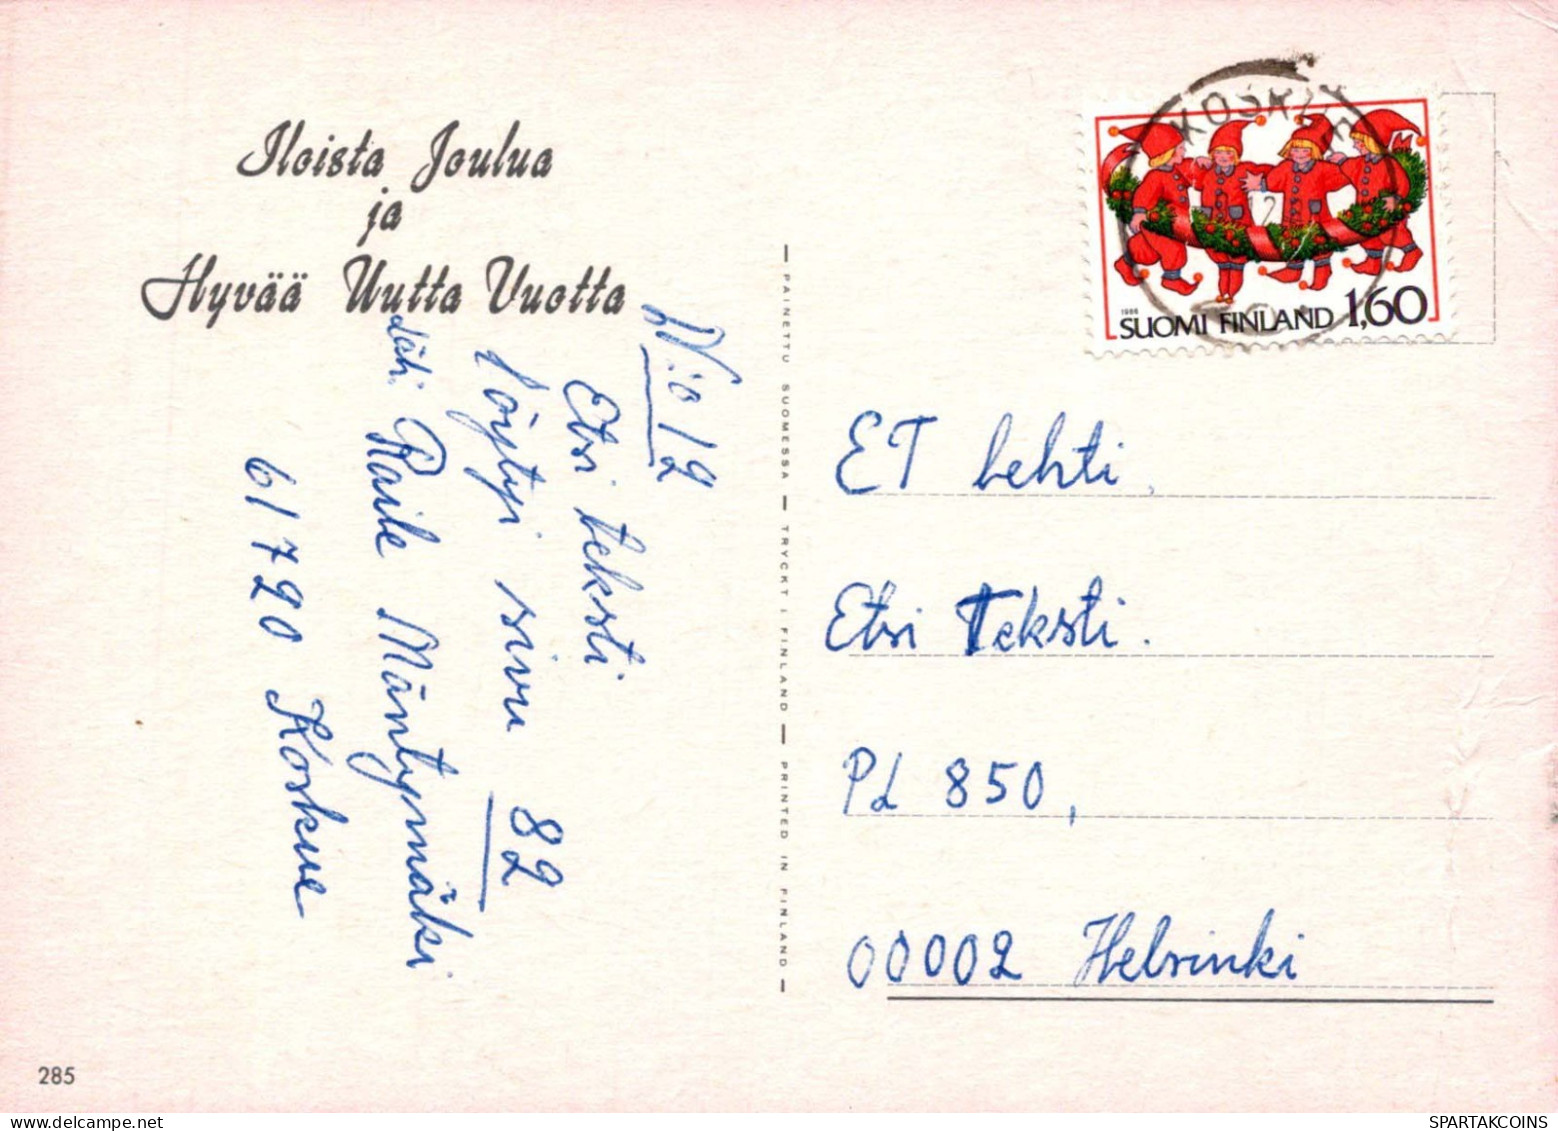 Iloista Joulua
ja
Hyvää Uutta Vuotta
N:o 12
Etsi teksti
löytyi sivu 82
läh. Raile Mäntymäki
61720 Koskue
PAINETTU SUOMESSA — TRYCKT I FINLAND — PRINTED IN FINLAND
KOSKUE
12
1986
SUOMI FINLAND 1,60
ET lehti,
Etsi Teksti.
PL 850,
00002 Helsinki
285
SPARTAKCOINS